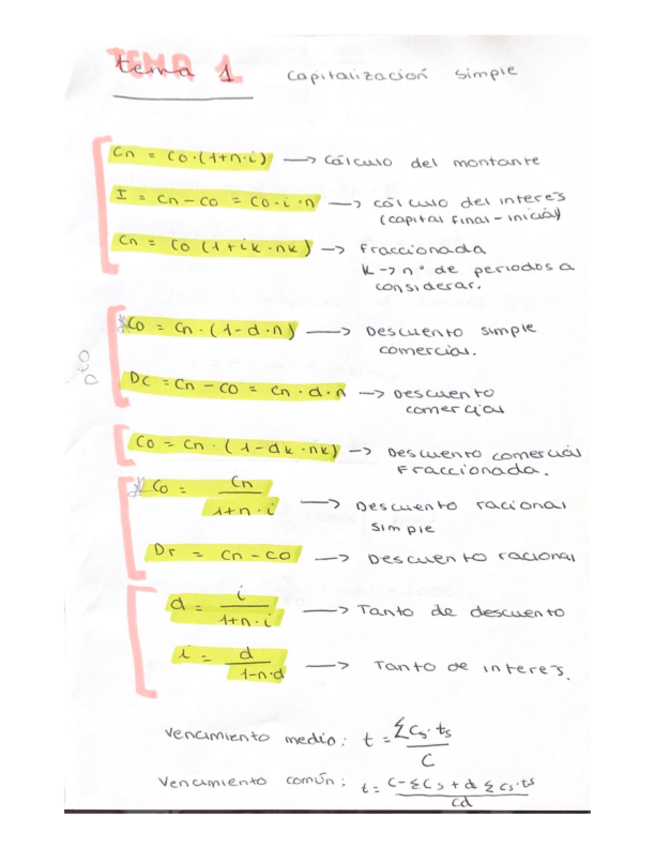 TEMA 1
tema 1 Capitalización simple
Cn = Co·(1+n·i) → Cálculo del montante
I = Cn – Co = Co·i·n → cálculo del interés
(capital final – inicial)
Cn = Co (1+ik·nk) → Fraccionada
k → nº de periodos a
considerar.
*Co = Cn·(1-d·n) → Descuento simple
comercial.
Dto
Dc = Cn – Co = Cn·d·n → Descuento
comercial
Co = Cn·(1-dk·nk) → Descuento comercial
Fraccionada.
*Co = Cn / 1+n·i → Descuento racional
simple
Dr = Cn – Co → Descuento racional
d = i / 1+n·i → Tanto de descuento
i = d / 1-n·d → Tanto de interés.
Vencimiento medio: t = ΣCs·ts / C
Vencimiento común: t = C-ΣCs+d Σcs·ts / cd